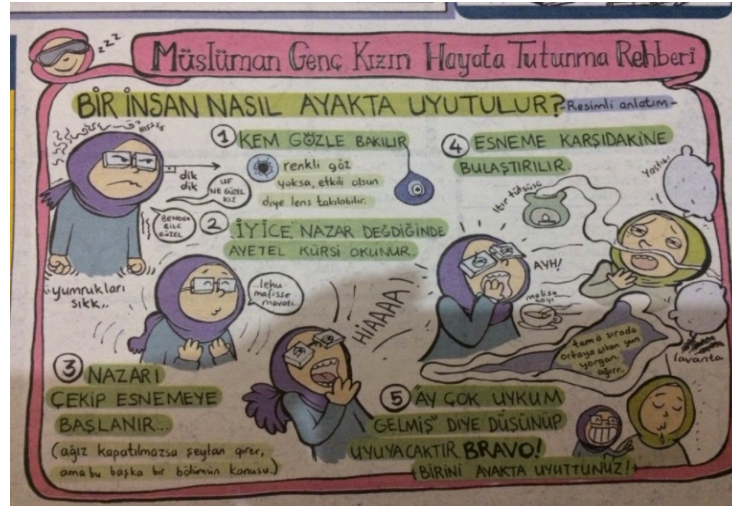 zzz
Müslüman Genç Kızın Hayata Tutunma Rehberi
BİR İNSAN NASIL AYAKTA UYUTULUR?
-Resimli anlatım-
1 KEM GÖZLE BAKILIR
renkli göz
yoksa, etkili olsun
diye lens takılabilir.
dik
dik
UF
NE GÜZEL
KIZ
BENDEN
BİLE
GÜZEL
yumrukları
sıkk..
2 İYİCE NAZAR DEĞDİĞİNDE
AYETEL KÜRSİ OKUNUR..
..lehu
mafisse
mavati..
3 NAZARI
ÇEKİP ESNEMEYE
BAŞLANIR...
(ağız kapatılmazsa şeytan girer,
ama bu başka bir bölümün konusu.)
HİAAAA!
4 ESNEME KARŞIDAKİNE
BULAŞTIRILIR.
ıtır tütsüsü
Yastık
AYH!
melisa
çayı
tam o sırada
ortaya çıkan yün
yorgan
ağırr..
lavanta
5 "AY ÇOK UYKUM
GELMİŞ" DİYE DÜŞÜNÜP
UYUYACAKTIR BRAVO!
BİRİNİ AYAKTA UYUTTUNUZ!